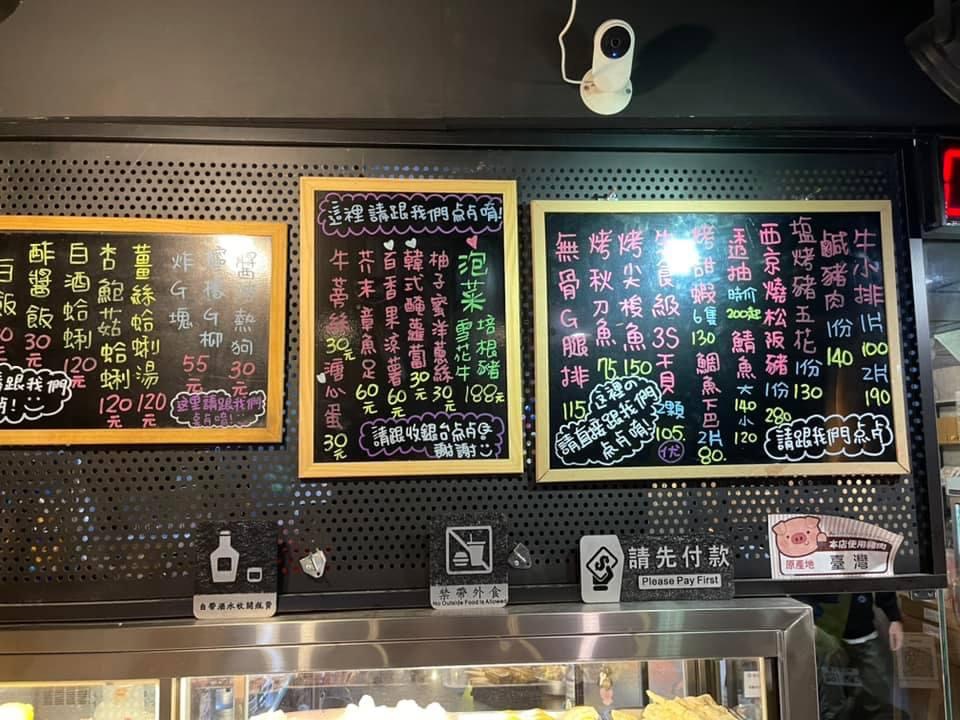 醬
熱狗
30元
G柳
55元
炸G塊
薑絲蛤蜊湯
120元
杏鮑菇蛤蜊
120元
白酒蛤蜊
120
酢醬飯
30元
白飯
請跟我們
唷!
這裡請跟我們
点唷!
這裡請跟我們点唷!
泡菜
培根豬
雪花牛
188元
柚子蜜洋蔥絲
30元
韓式醃蘿蔔
30元
百香果涼薯
60元
芥末章魚
60元
牛蒡絲
30元
溏心蛋
30元
請跟收銀台点唷
謝謝
牛小排
1片
100
2片
190
鹹豬肉
1份
140
塩烤豬五花
1份
130
西京燒松阪豬
1份
280
透抽
時价
200起
鯖魚
大
140
小
120
烤甜蝦
6隻
130
鯛魚下巴
2片
80.
生食級3S干貝
2顆
105.
烤尖梭魚
150
烤秋刀魚
75
無骨G腿排
115
這裡の
請直接跟我們
点唷!
請跟我們点
自帶酒水收開瓶費
禁帶外食
No Outside Food is Allowed
請先付款
Please Pay First
本店使用豬肉
原產地
臺灣